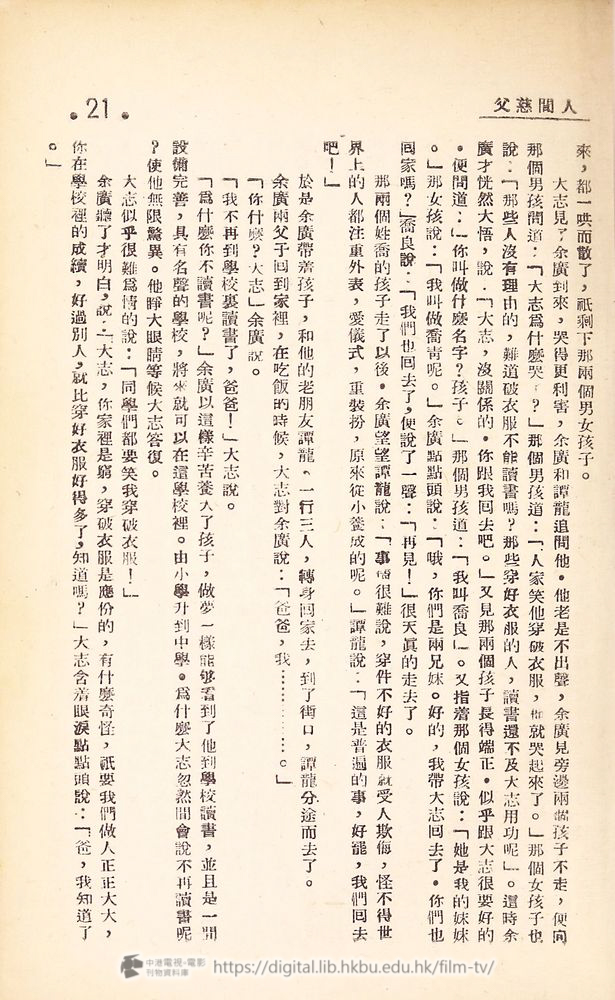 人間慈父
•21•
來，都一哄而散了，祇剩下那兩個男女孩子。
大志見了余廣到來，哭得更利害，余廣和譚龍追問他。他老是不出聲，余廣見旁邊兩個孩子不走，便向
那個男孩問道：「大志爲什麼哭？」那個男孩道：「人家笑他穿破衣服，他就哭起來了。」那個女孩子也
說：「那些人沒有理由的，難道破衣服不能讀書嗎？那些穿好衣服的人，讀書還不及大志用功呢」。這時余
廣才恍然大悟，說：「大志，沒關係的。你跟我回去吧。」又見那兩個孩子長得端正。似乎跟大志很要好的
。便問道：「你叫做什麼名字？孩子。」那個男孩道：「我叫喬良」。又指着那個女孩說：「她是我的妹妹
。」那女孩說：「我叫做喬靑呢。」余廣點點頭說：「哦，你們是兩兄妹。好的，我帶大志回去了。你們也
回家嗎？」喬良說：「我們也回去了，便說了一聲：「再見！」很天眞的走去了。
那兩個姓喬的孩子走了以後。余廣望望譚龍說：「事情很難說，穿件不好的衣服就受人欺侮，怪不得世
界上的人都注重外表，愛儀式，重裝扮，原來從小養成的呢。」譚龍說：「這是普遍的事，好罷，我們回去
吧！」
於是余廣帶着孩子，和他的老朋友譚龍、一行三人，轉身回家去，到了街口，譚龍分途而去了。
余廣兩父子回到家裡，在吃飯的時候，大志對余廣說：「爸爸，我…………。」
「你什麼？大志」余廣說。
「我不再到學校裏讀書了，爸爸！」大志說。
「爲什麼你不讀書呢？」余廣以這樣辛苦養大了孩子，做夢一樣能够看到了他到學校讀書，並且是一間
設備完善，具有名聲的學校，將來就可以在這學校裡。由小學升到中學。爲什麼大志忽然間會說不再讀書呢
？使他無限驚異。他睜大眼睛等候大志答復。
大志似乎很難爲情的說：「同學們都要笑我穿破衣服！」
余廣聽了才明白，說：「大志，你家裡是窮，穿破衣服是應份的，有什麼奇怪，祇要我們做人正正大大，
你在學校裡的成績，好過別人，就比穿好衣服好得多了，知道嗎？」大志含着眼淚點點頭說：「爸，我知道了
。」
中港電視・電影
刊物資料庫
https://digital.lib.hkbu.edu.hk/film-tv/